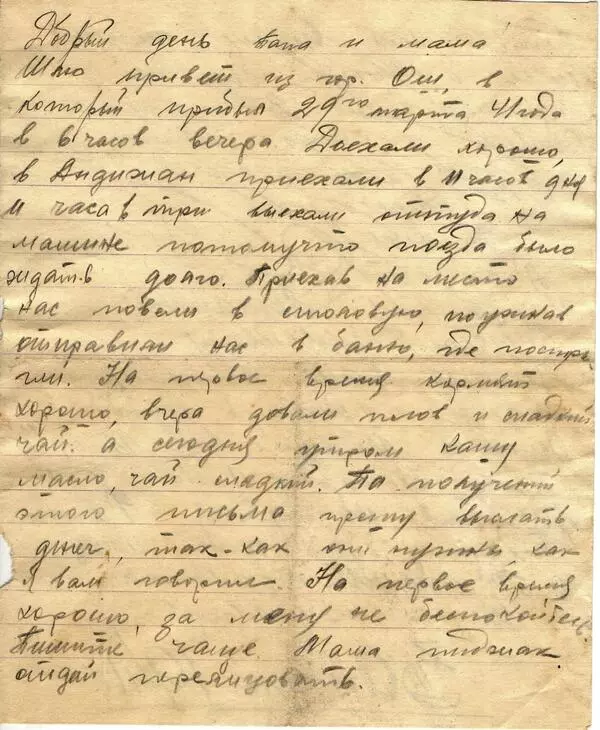 Добрый день папа и мама
Шлю привет из гор. Ош, в
который прибыл 29го марта 41 года
в 6 часов вечера Доехали хорошо,
в Андижан приехали в 11 часов дня
и часа в три выехали оттуда на
машине потомучто поезда было
ждать долго. Приехав на место
нас повели в столовую, поужинав
отправили нас в баню, где постри
гли. На первое время кормят
хорошо, вчера довали плов и сладкий
чай. а сегодня утром кашу
масло, чай сладкий. По получении
этого письма прошу выслать
денег, так-как они нужны, как
я вам говорил. На первое время
хорошо, за меня не беспокойтесь.
Пишите чаще. Мама пиджак
отдай перелицовать.